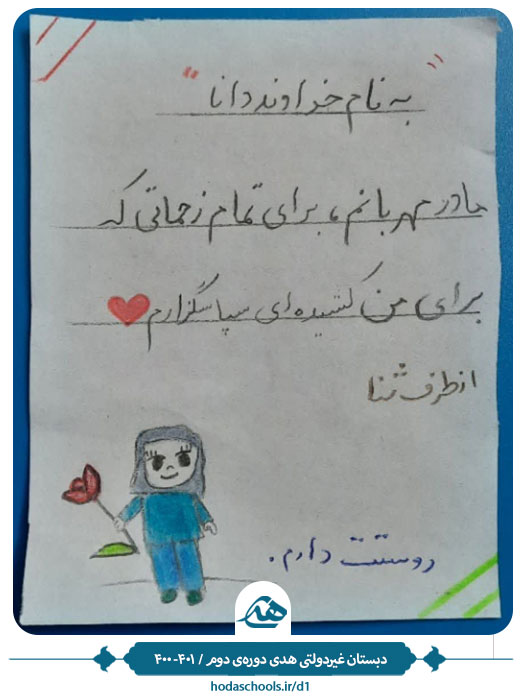 "به نام خداوند دانا"
مادر مهربانم، برای تمام زحماتی که
برای من کشیده‌ای سپاسگزارم
از طرف ثنا
دوستت دارم.
هدی
دبستان غیردولتی هدی دوره‌ی دوم / ۴۰۱-۴۰۰
hodaschools.ir/d1